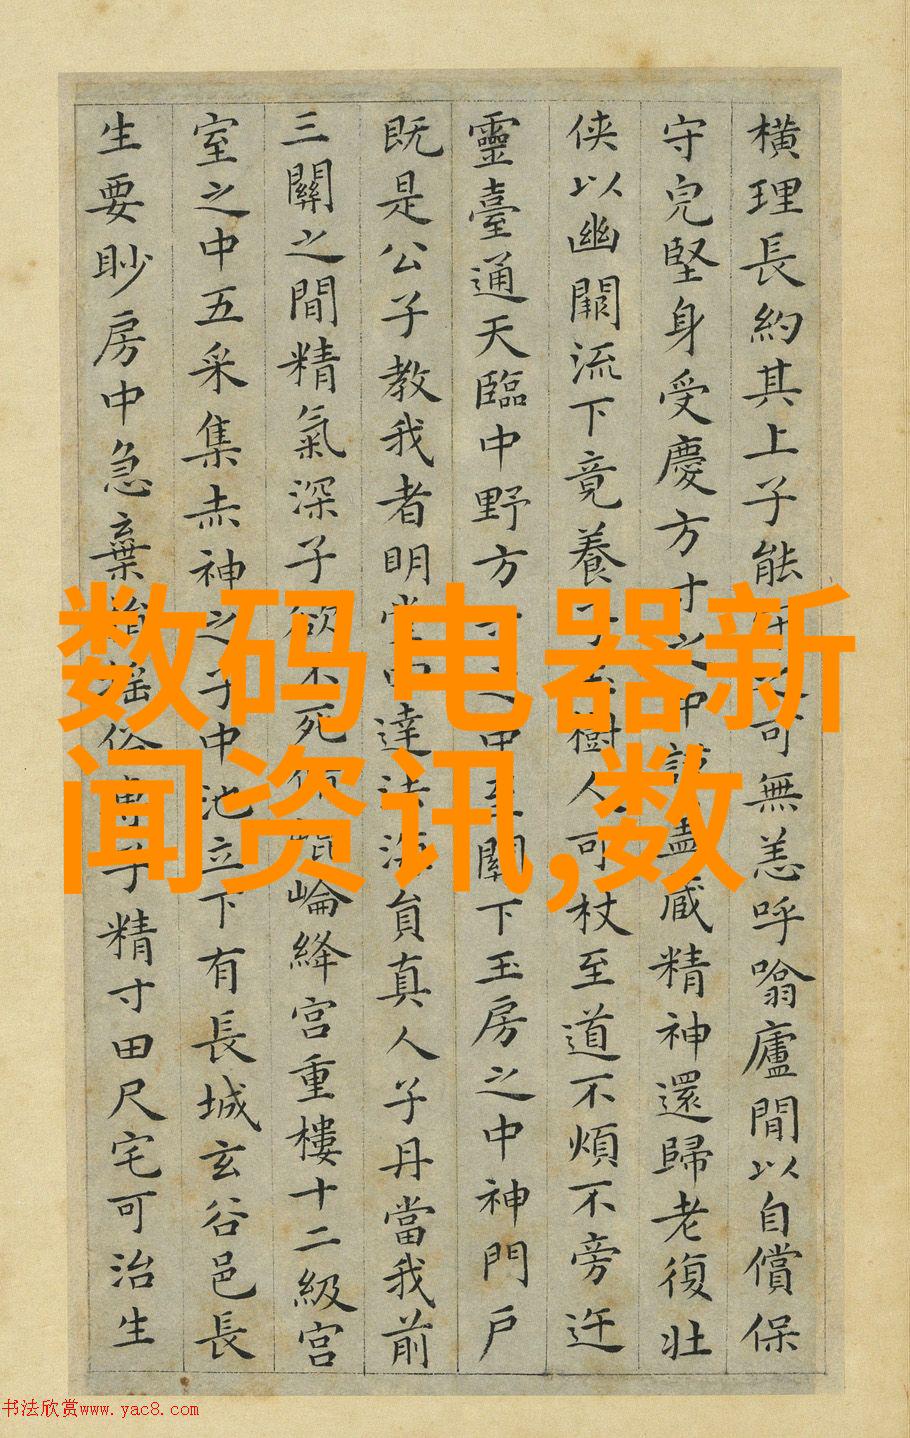 横理長約其上子能
可無恙呼噏廬間以自償保
守皃堅身受慶方寸之中
蔵精神還歸老復壮
俠以幽闕流下竟養
樹人可杖至道不煩不旁迕
靈臺通天臨中野方寸之中至關下玉房之中神門戶
既是公子教我者明堂四達法海員真人子丹當我前
三關之間精氣深子欲不死
崘絳宫重樓十二級宫
室之中五采集赤神之子中池立下有長城玄谷邑長
生要眇房中急棄
俗專子精寸田尺宅可治生
数码电器新
闻资讯,数
书法欣赏www.yac8.com